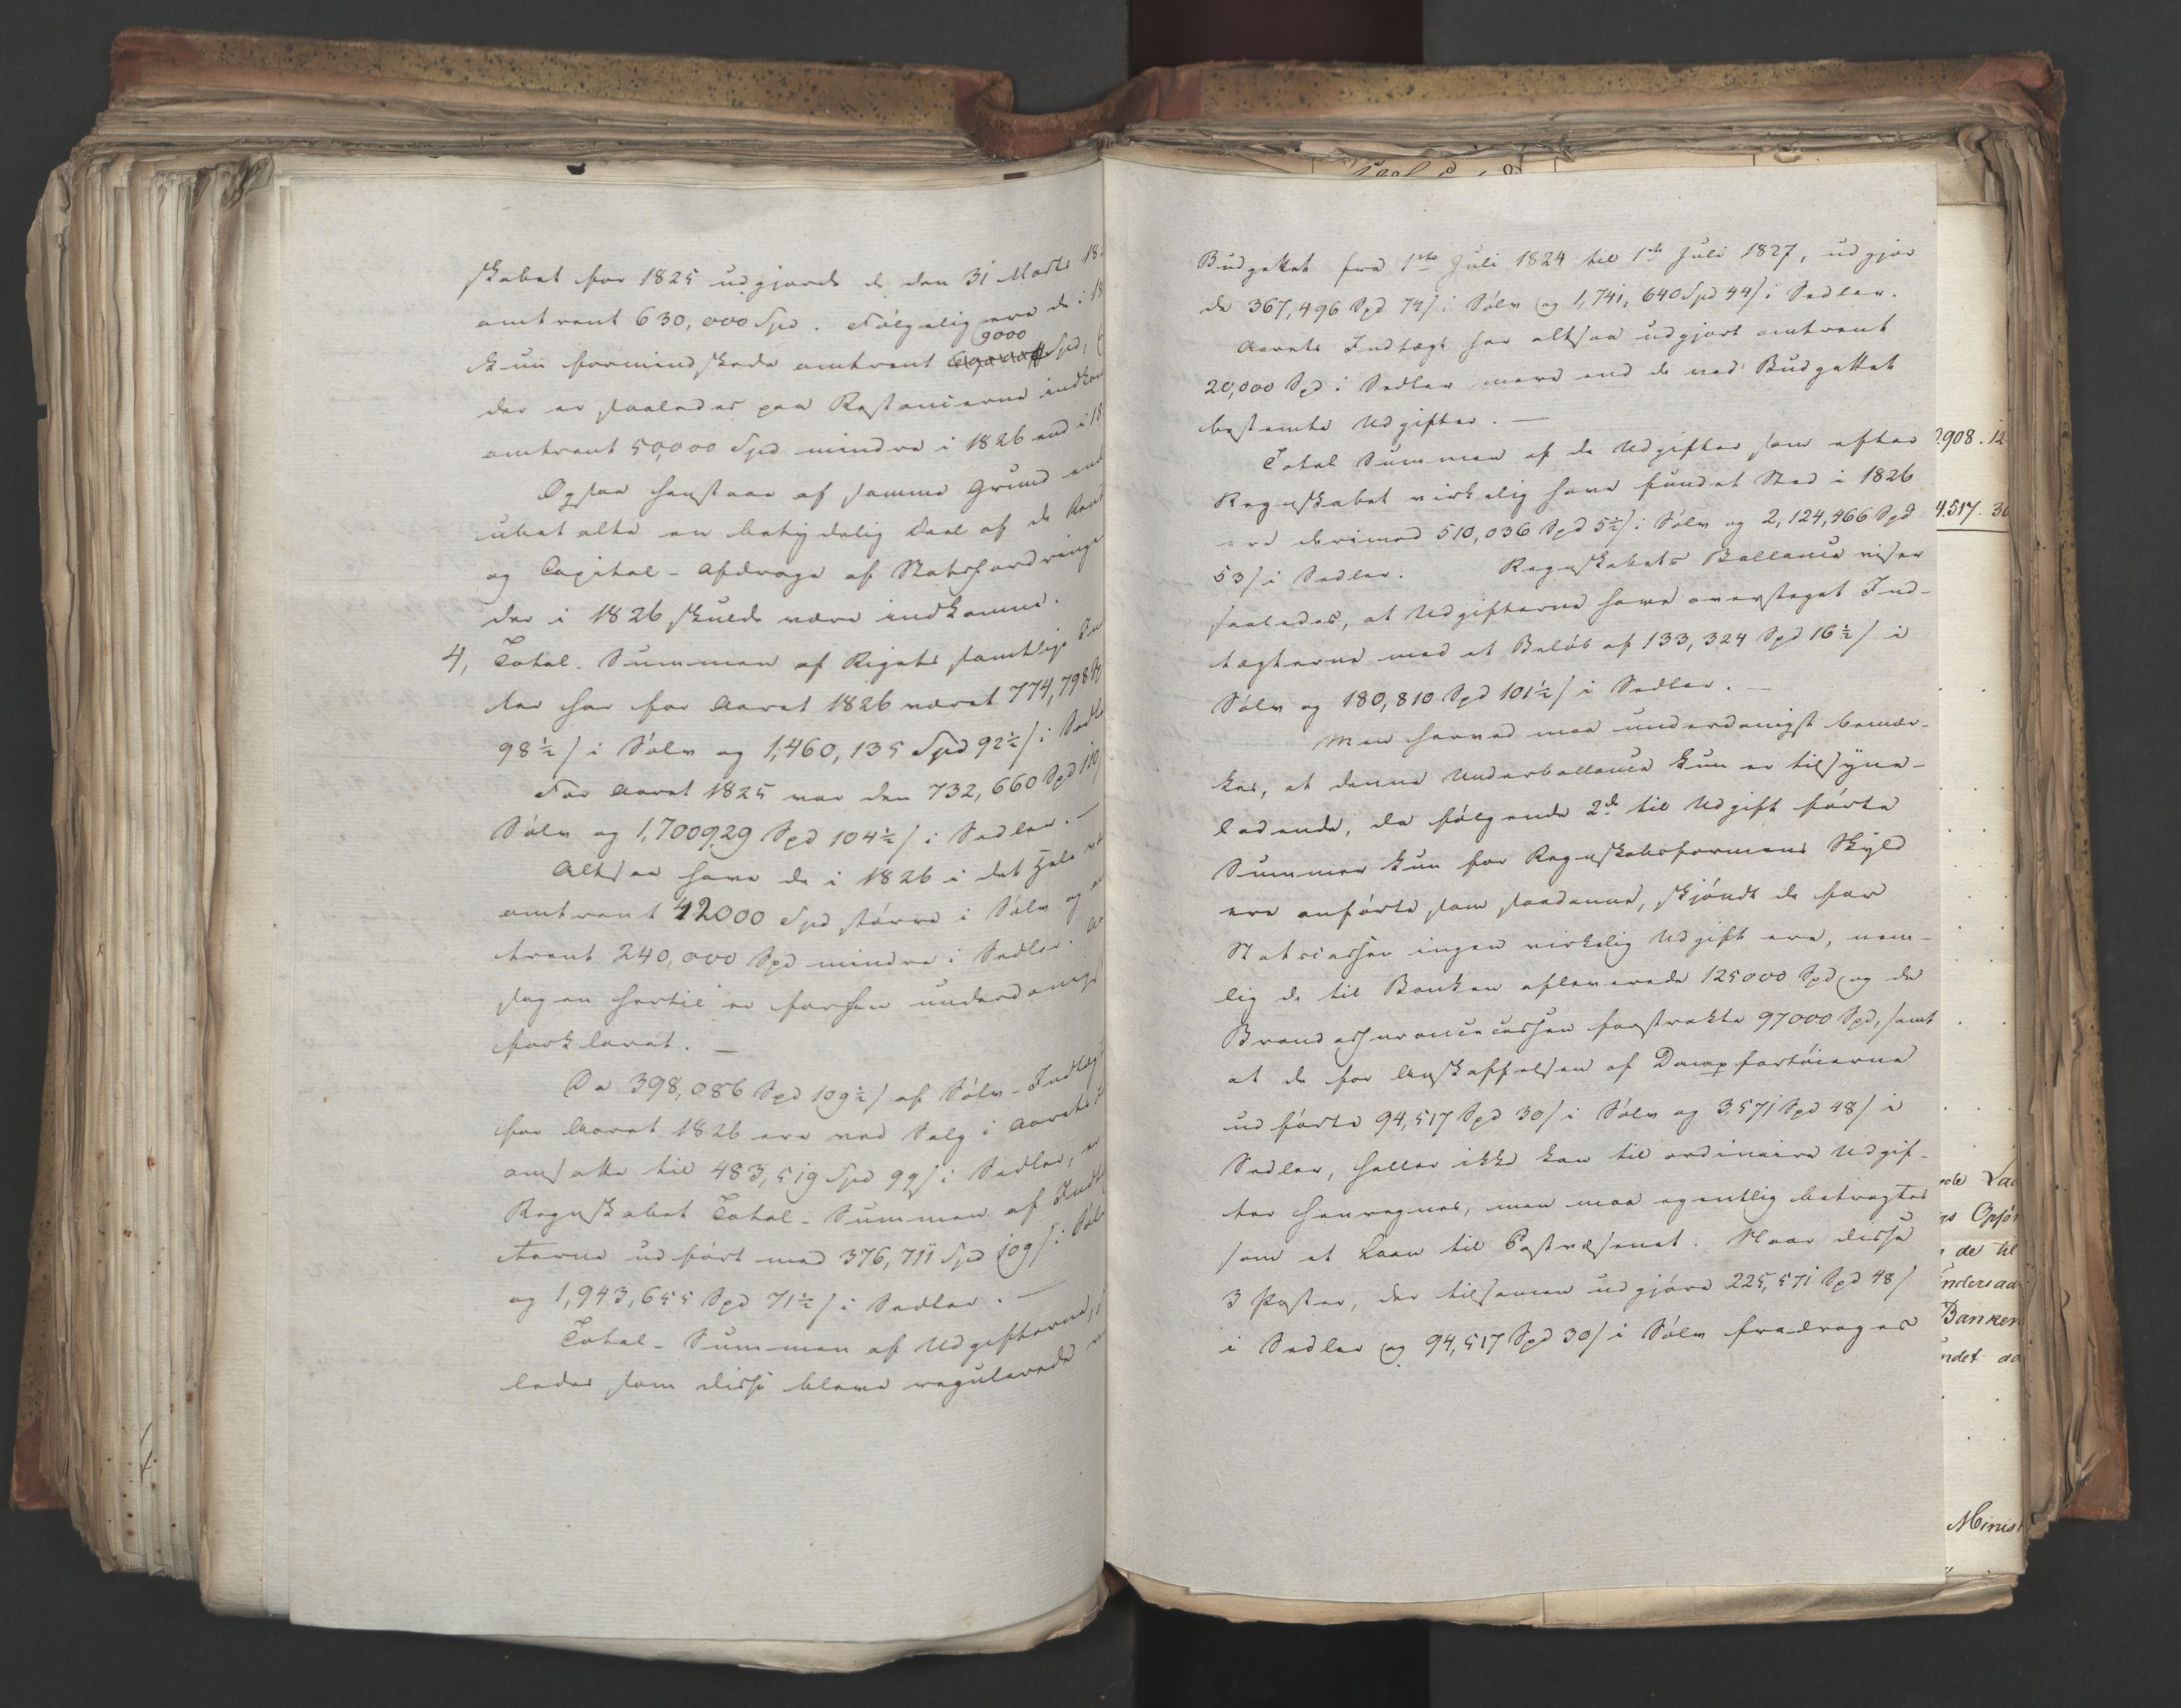 skabet for 1825 udgjorde de den 31 Marts 18
omtrent 630,000 Spd. Følgelig ere de i 18
9000
kun formindskede omtrent Spd,
der er saaledes paa Restancerne indkom
omtrent 50,000 Spd mindre i 1826 end i 18
Ogsaa henstaae af samme Grund end
ubetalte en betydelig Deel af de Rent
og Capital-Afdrage af Statsfordringer
der i 1826 skulde være indkomne.
4, Total-Summen af Rigets samtlige In
ter har for Aaret 1826 været 774,798 Sp
98½ s i Sølv og 1,460,135 Spd 92½ s i Sedle
For Aaret 1825 var den 732,660 Spd 110
Sølv og 1,700929 Spd 104½ s i Sedler. —
Altsaa have de i 1826 i det Hele
omtrent 42000 Spd større i Sølv og
trent 240,000 Spd mindre i Sedler. Aar
sagen hertil er forhen underdanigst
forklaret. —
Da 398,086 Spd 109½ s af Sølv-Indtægt
for Aaret 1826 ere ved Salg i Aarets
omsatte til 483,519 Spd 99 s i Sedler,
Regnskabet Total-Summen af Indtæ
terne udført med 376,711 Spd 109 s i Sølv
og 1,943,655 Spd 71½ s i Sedler. —
Total-Summen af Udgifterne,
ledes som disse bleve regulerede
Budgettet fra 1ste Juli 1824 til 1ste Juli 1827, udgjør
de 367,496 Spd 74 s i Sølv og 1,741,640 Spd 44 s i Sedler.
Aarets Indtægt har altsaa udgjort omtrent
20,000 Spd i Sedler mere end de ved Budgettet
bestemte Udgifter. —
Total Summen af de Udgifter som efter
Regnskabet virkelig have fundet Sted i 1826
ere derimod 510,036 Spd 5½ s i Sølv og 2,124,466 Spd
53 s i Sedler. Regnskabets Ballance viser
saaledes, at Udgifterne have oversteget Ind-
tægterne med et Beløb af 133,324 Spd 16½ s i
Sølv og 180,810 Spd 101½ s i Sedler. —
Men herved maa underdanigst bemær-
kes, at denne Underballance kun er tilsyne-
ladende, da følgende 2de til Udgift førte
Summer kun for Regnskabsformens Skyld
ere anførte som saadanne, skjøndt de for
Statscassen ingen virkelig Udgift ere, nem-
lig de til Banken afleverede 125000 Spd og de
Brandassurancecassen forstrakte 97000 Spd, samt
at de for Anskaffelsen af Dampfartøierne
udførte 94,517 Spd 30 s i Sølv og 3,571 Spd 48 s i
Sedler, heller ikke kan til ordinaire Udgif-
ter henregnes, men maa egentlig betragtes
som et Laan til Postvæsenet. Naar disse
3 Poster, der tilsammen udgjøre 225,571 Spd 48 s
i Sedler og 94,517 Spd 30 s i Sølv fradrages
908. 12
4.517. 30
Opfør
de til
Undersaa
Banken
ndet
Minist